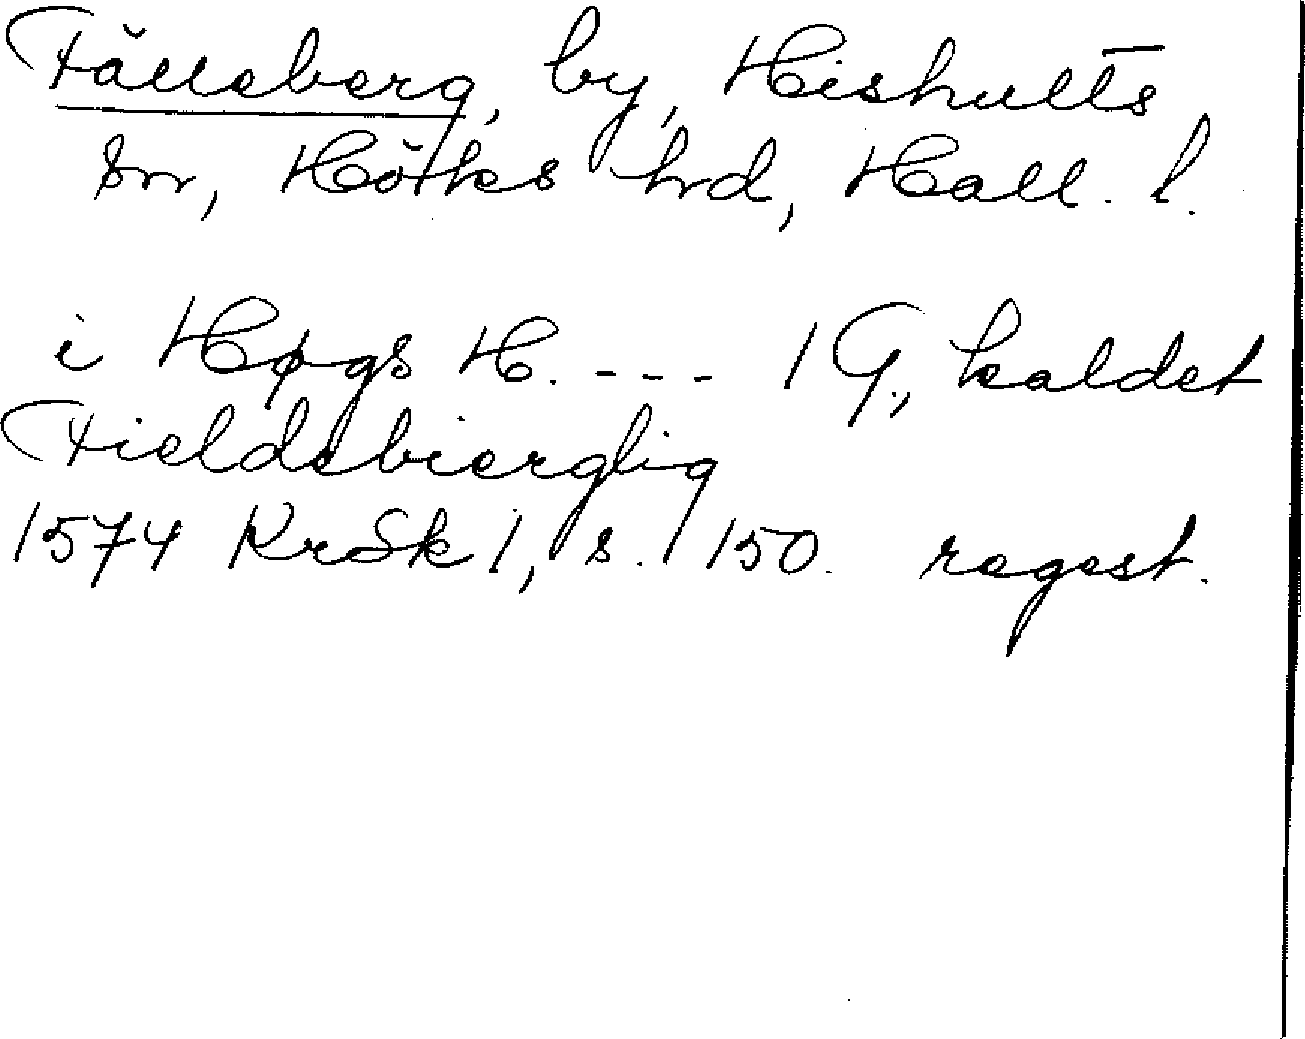 Fälleberg, by, Hishults
sn, Höks hrd, Hall. l.
i Høgs H. --- 1 G., kaldet
Fieldebierglig
1574 KrSk 1, s. 150. regest.